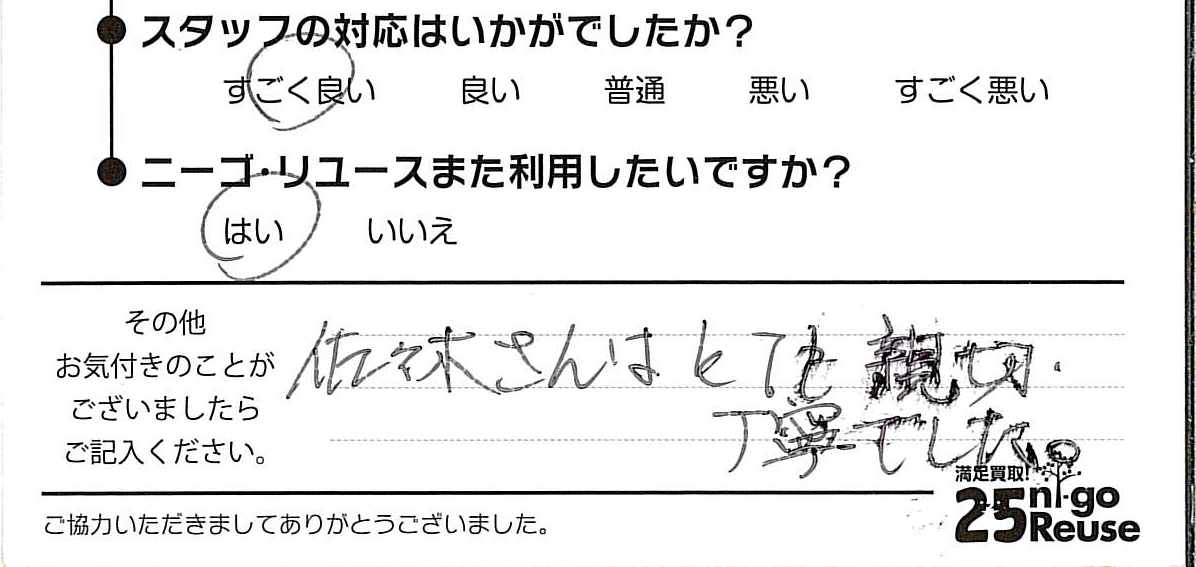 スタッフの対応はいかがでしたか?
すごく良い 良い 普通 悪い すごく悪い
ニーゴ・リユースまた利用したいですか?
はい いいえ
その他
お気付きのことが
ございましたら
ご記入ください。
佐々木さんはとても親切・
丁寧でした。
ご協力いただきましてありがとうございました。
満足買取!
25 ni-go
Reuse